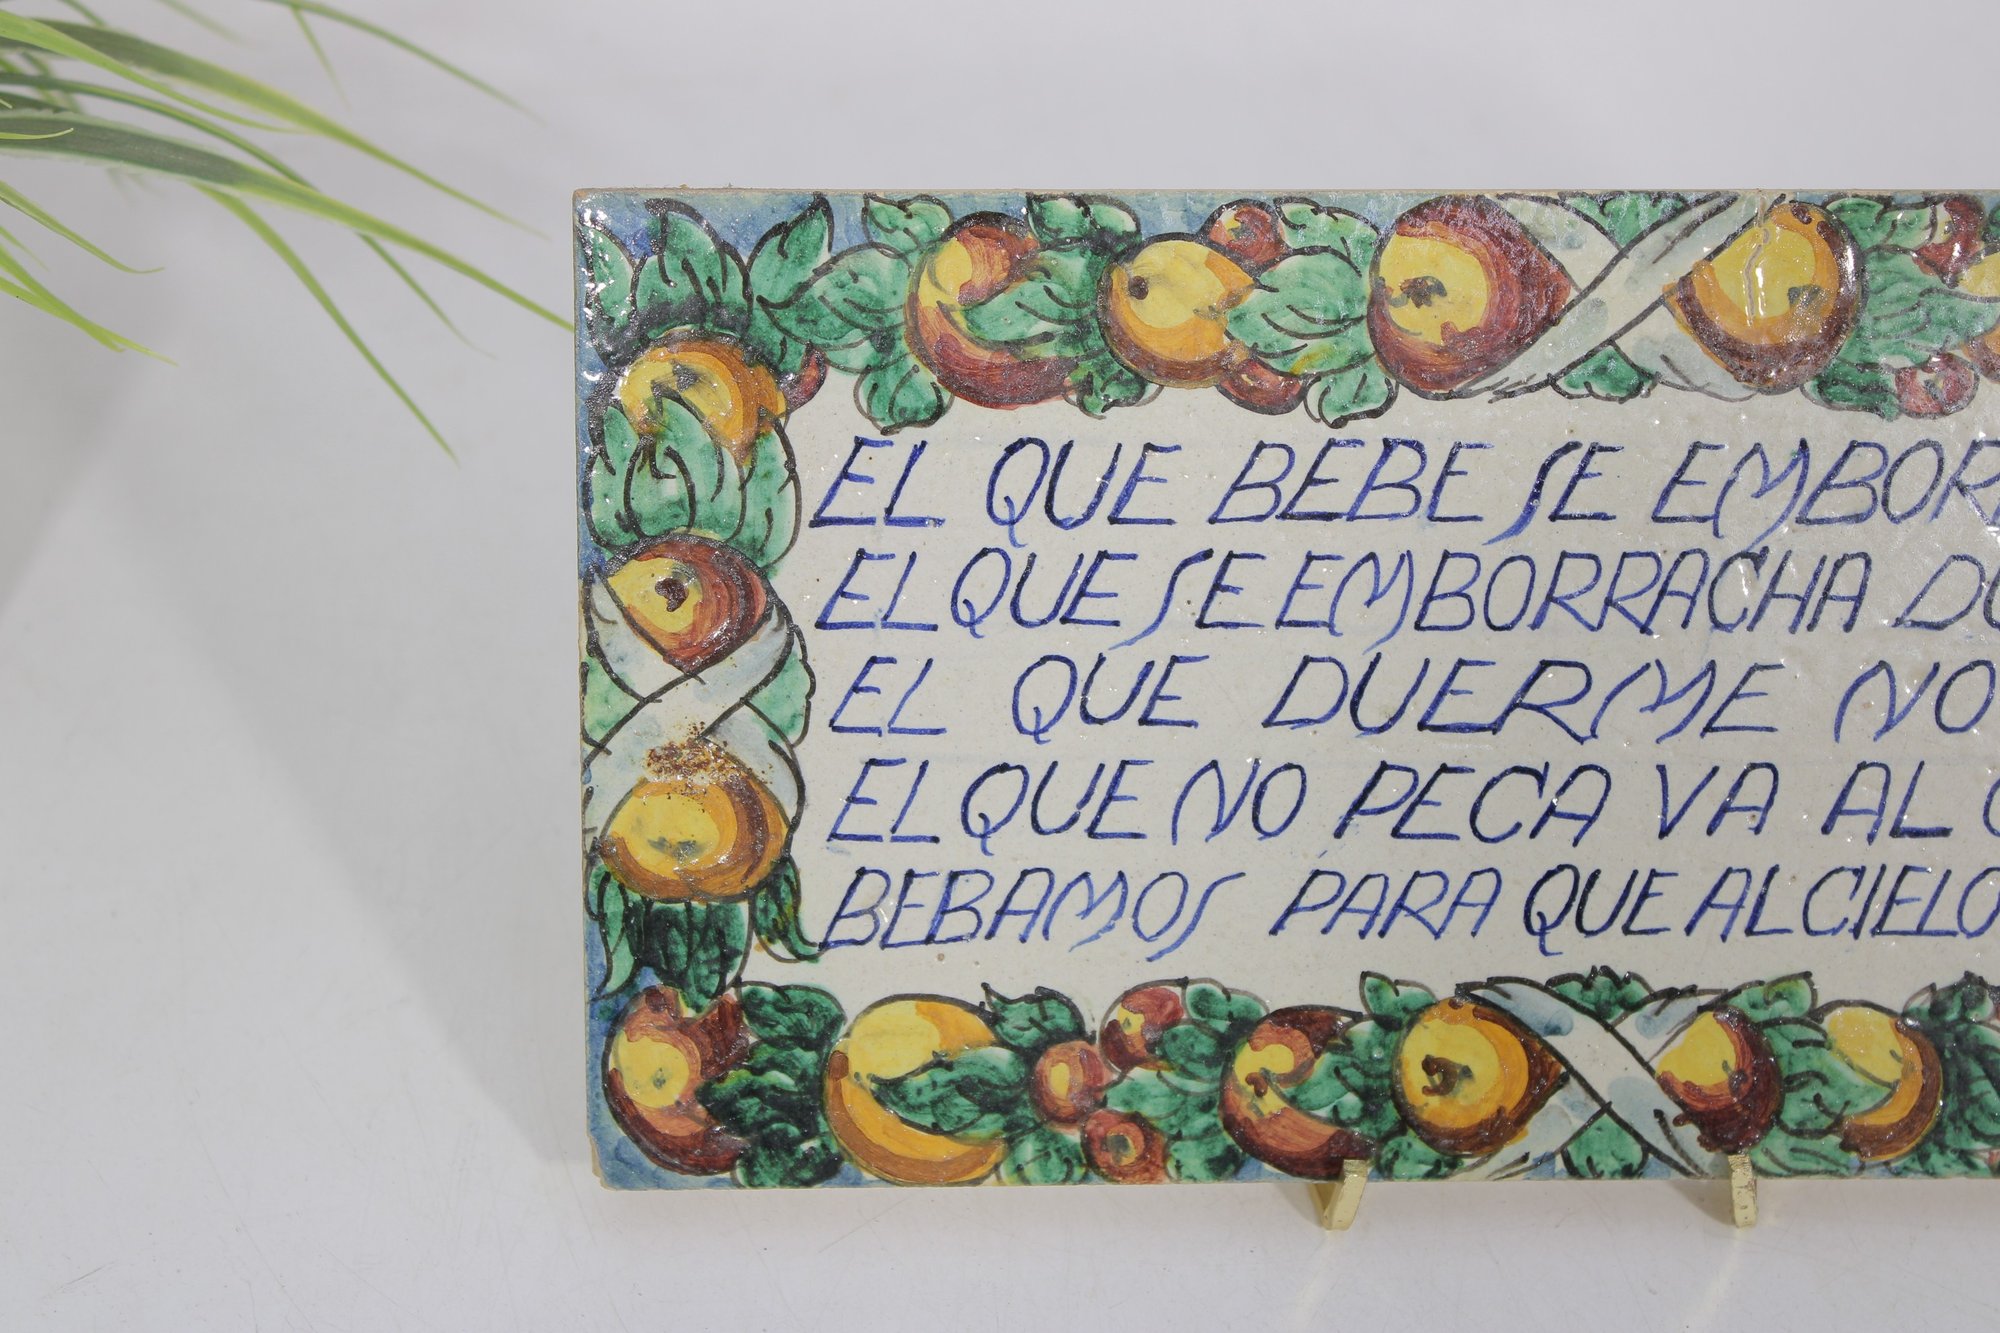 EL QUE BEBE SE EMBOR
EL QUE SE EMBORRACHA DU
EL QUE DUERME NO
EL QUE NO PECA VA AL C
BEBAMOS PARA QUE AL CIELO